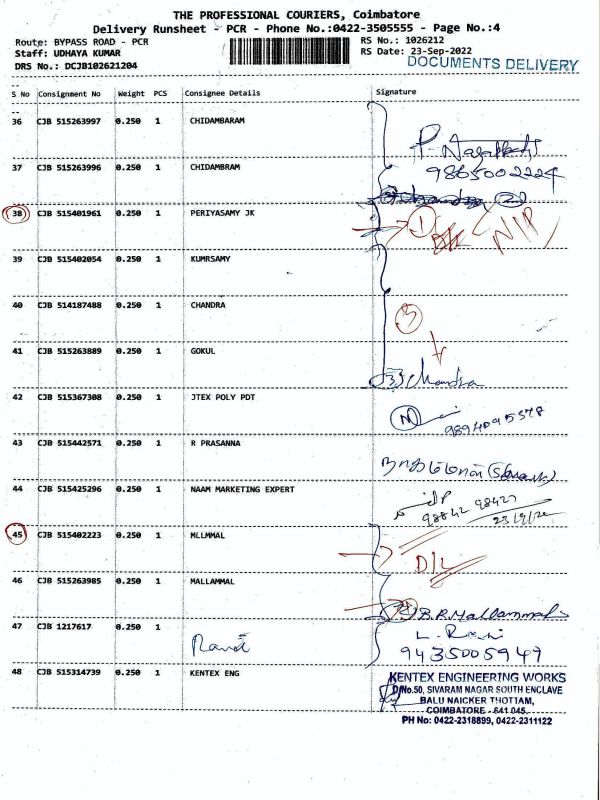 THE PROFESSIONAL COURIERS, Coimbatore
Delivery Runsheet - PCR - Phone No.:0422-3505555 - Page No.:4
Route: BYPASS ROAD - PCR RS No.: 1026212
Staff: UDHAYA KUMAR RS Date: 23-Sep-2022
DRS No.: DCJB102621204 DOCUMENTS DELIVERY
S No Consignment No Weight PCS Consignee Details Signature
36 CJB 515263997 0.250 1 CHIDAMBARAM
37 CJB 515263996 0.250 1 CHIDAMBRAM 9865002224
38 CJB 515401961 0.250 1 PERIYASAMY JK 1
39 CJB 515402054 0.250 1 KUMRSAMY
40 CJB 514187488 0.250 1 CHANDRA 3
41 CJB 515263889 0.250 1 GOKUL 3 Chandra
42 CJB 515367308 0.250 1 JTEX POLY PDT
43 CJB 515442571 0.250 1 R PRASANNA
44 CJB 515425296 0.250 1 NAAM MARKETING EXPERT 98842 98427 23/9/22
45 CJB 515402223 0.250 1 MLLMMAL D/L
46 CJB 515263985 0.250 1 MALLAMMAL B.R.Mallammal
47 CJB 1217617 0.250 1 Ravi L. Ravi
9435005949
48 CJB 515314739 0.250 1 KENTEX ENG KENTEX ENGINEERING WORKS
D/No.50, SIVARAM NAGAR SOUTH ENCLAVE
BALU NAICKER THOTTAM,
COIMBATORE - 641 045.
PH No: 0422-2318899, 0422-2311122